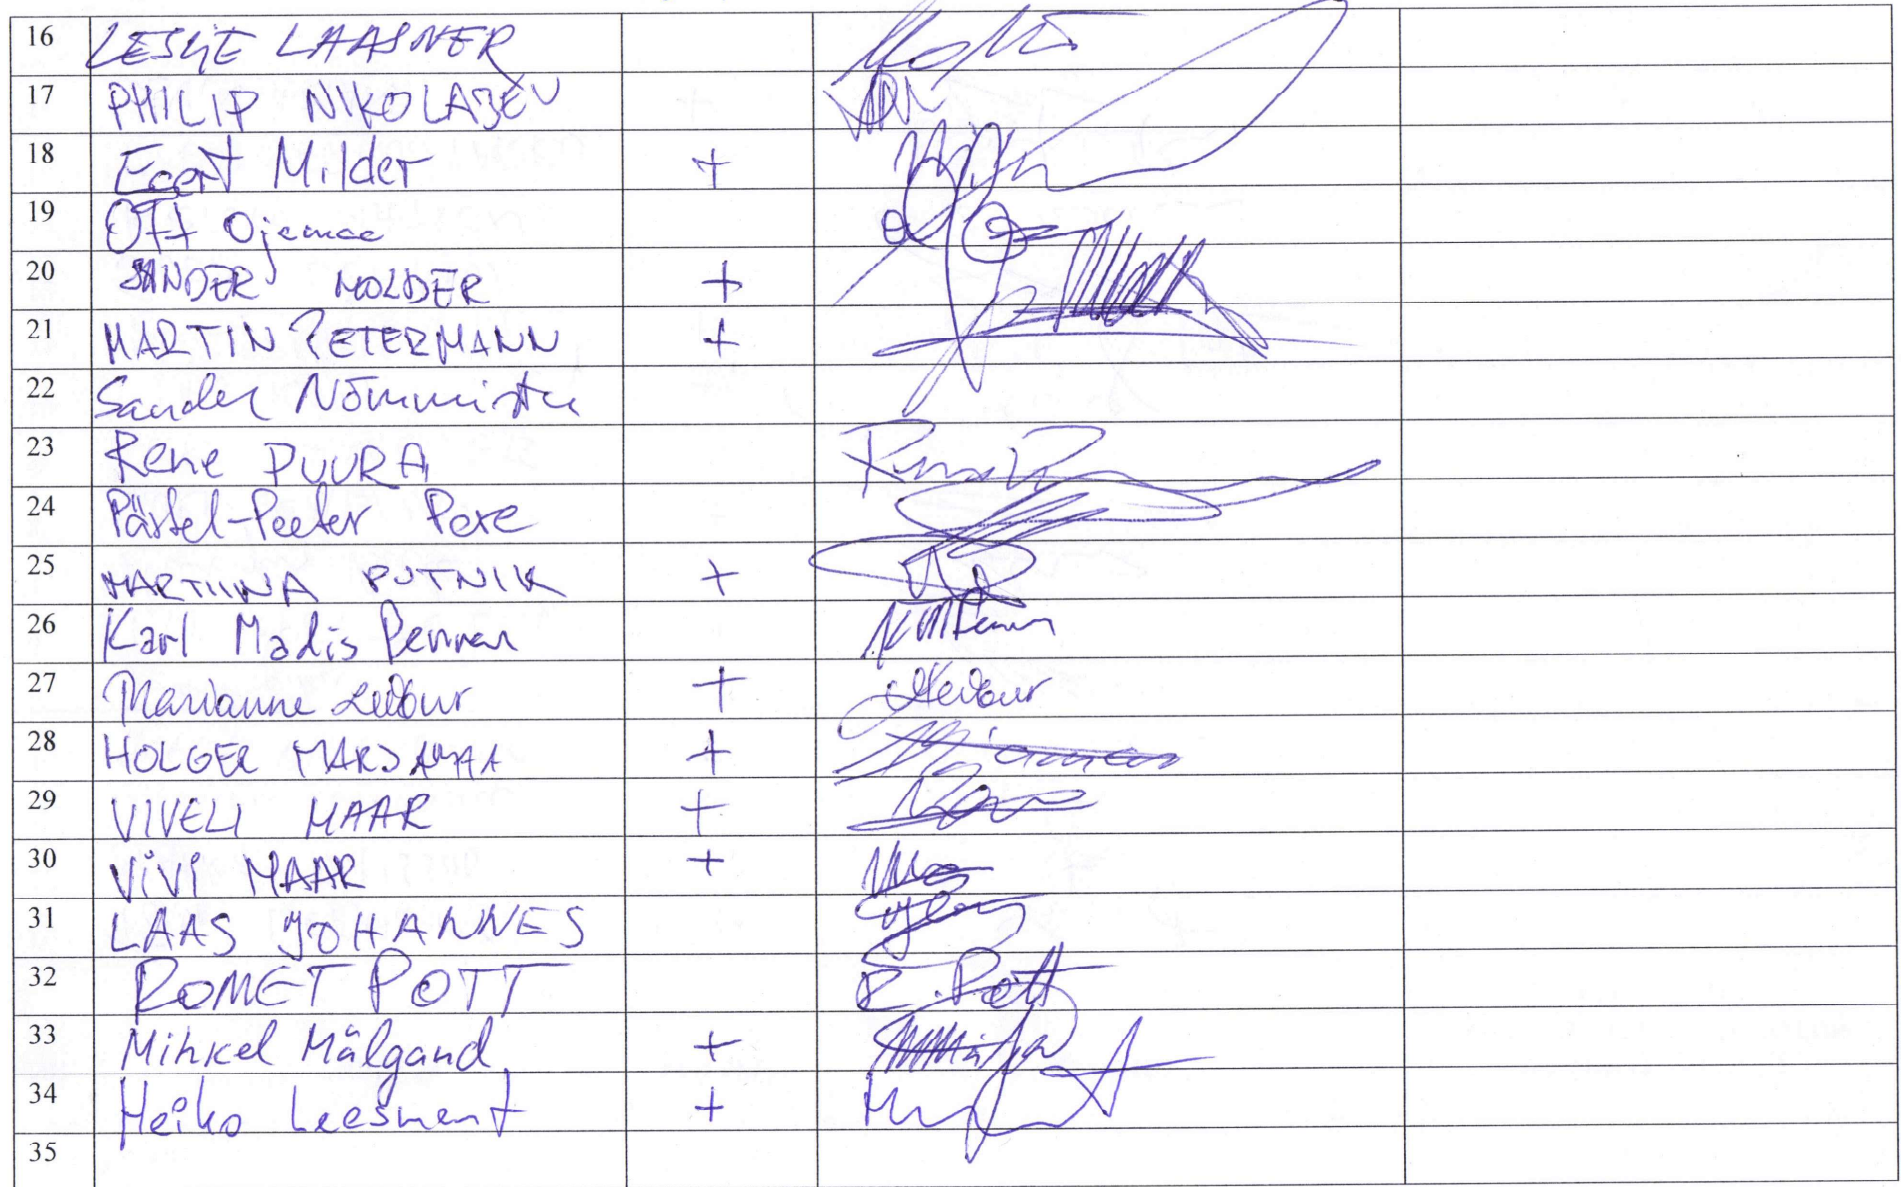 16 LESLIE LAASNER
17 PHILIP NIKOLAJEV
18 Egert Milder +
19 Ott Ojamaa
20 SANDER MOLDER +
21 MARTIN PETERMANN +
22 Sander Nõmmistu
23 Rene PUURA
24 Pärtel-Peeter Pere
25 MARTIINA PUTNIK +
26 Karl Madis Pennar
27 Marianne Leibur +
28 HOLGER MARJAMAA +
29 VIVELI MAAR +
30 ViVi MAAR +
31 LAAS JOHANNES
32 ROMET POTT R. Pott
33 Mihkel Mälgand +
34 Heiko Leesment +
35